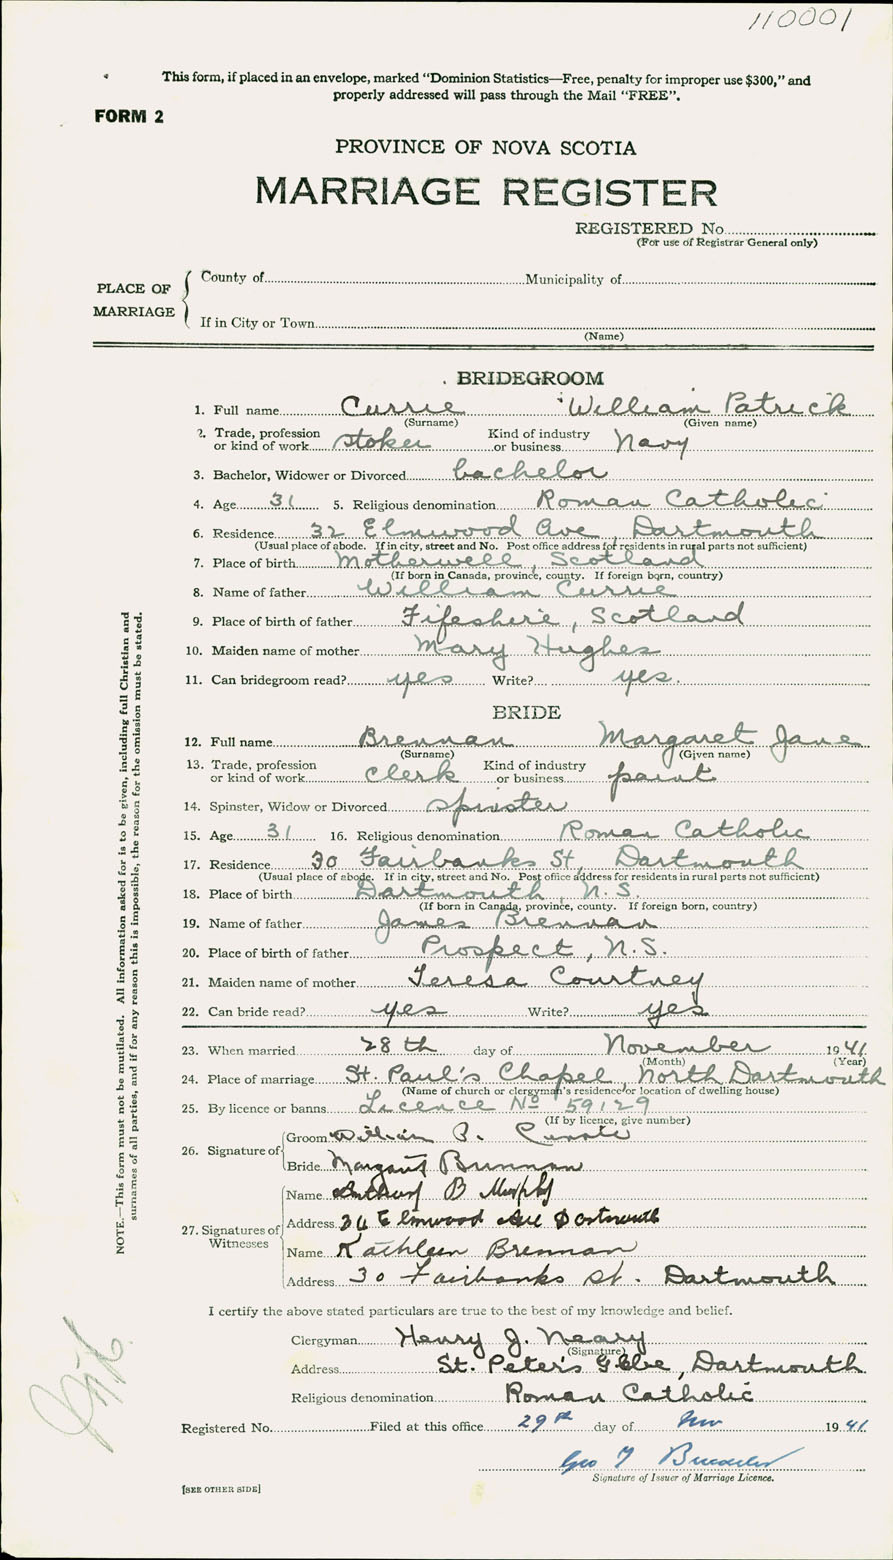 110001
This form, if placed in an envelope, marked "Dominion Statistics—Free, penalty for improper use $300," and
properly addressed will pass through the Mail "FREE".
FORM 2
PROVINCE OF NOVA SCOTIA
MARRIAGE REGISTER
REGISTERED No.
(For use of Registrar General only)
PLACE OF MARRIAGE
County of Municipality of
If in City or Town
(Name)
BRIDEGROOM
1. Full name Currie William Patrick
(Surname) (Given name)
2. Trade, profession or kind of work stoker Kind of industry or business Navy
3. Bachelor, Widower or Divorced bachelor
4. Age 31 5. Religious denomination Roman Catholic
6. Residence 32 Elmwood Ave, Dartmouth
(Usual place of abode. If in city, street and No. Post office address for residents in rural parts not sufficient)
7. Place of birth Motherwell, Scotland
(If born in Canada, province, county. If foreign born, country)
8. Name of father William Currie
9. Place of birth of father Fifeshire, Scotland
10. Maiden name of mother Mary Hughes
11. Can bridegroom read? yes Write? yes.
BRIDE
12. Full name Brennan Margaret Jane
(Surname) (Given name)
13. Trade, profession or kind of work clerk Kind of industry or business paint
14. Spinster, Widow or Divorced spinster
15. Age 31 16. Religious denomination Roman Catholic
17. Residence 30 Fairbanks St, Dartmouth
(Usual place of abode. If in city, street and No. Post office address for residents in rural parts not sufficient)
18. Place of birth Dartmouth, N.S.
(If born in Canada, province, county. If foreign born, country)
19. Name of father James Brennan
20. Place of birth of father Prospect, N.S.
21. Maiden name of mother Teresa Courtney
22. Can bride read? yes Write? yes
23. When married 28th day of November 1941
(Month) (Year)
24. Place of marriage St. Paul's Chapel, North Dartmouth
(Name of church or clergyman's residence or location of dwelling house)
25. By licence or banns Licence No 59129
(If by licence, give number)
26. Signature of
Groom William P.
Bride Margaret Brennan
27. Signatures of Witnesses
Name B Murphy
Address Elmwood Ave Dartmouth
Name Kathleen Brennan
Address 30 Fairbanks St. Dartmouth
I certify the above stated particulars are true to the best of my knowledge and belief.
Clergyman Henry J. Neary
(Signature)
Address St. Peter's Glebe, Dartmouth
Religious denomination Roman Catholic
Registered No. Filed at this office 29th day of Nov 1941
Geo
Signature of Issuer of Marriage Licence.
[SEE OTHER SIDE]
NOTE.—This form must not be mutilated. All information asked for is to be given, including full Christian and
surnames of all parties, and if for any reason this is impossible, the reason for the omission must be stated.